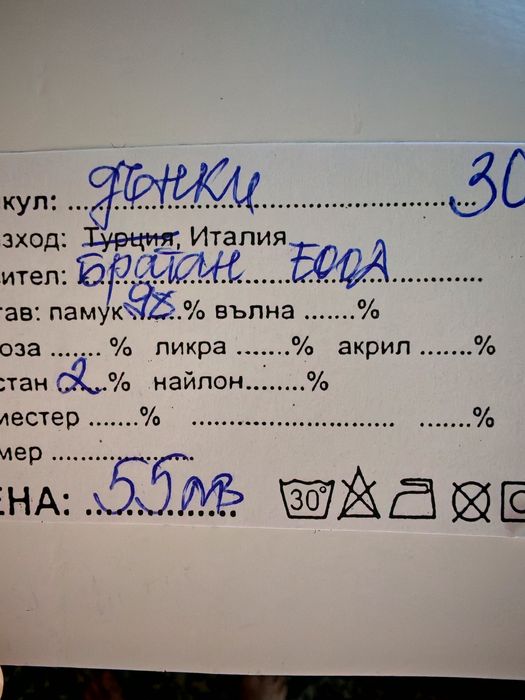 кул: ... дънки ... 30
зход: Турция, Италия
ител: Братан ЕООД
тав: памук 98 % вълна .......%
оза ....... % ликра .......% акрил .......%
стан 2 % найлон.......%
иестер .......% .......%
мер
ЕНА: 55 лв 30°